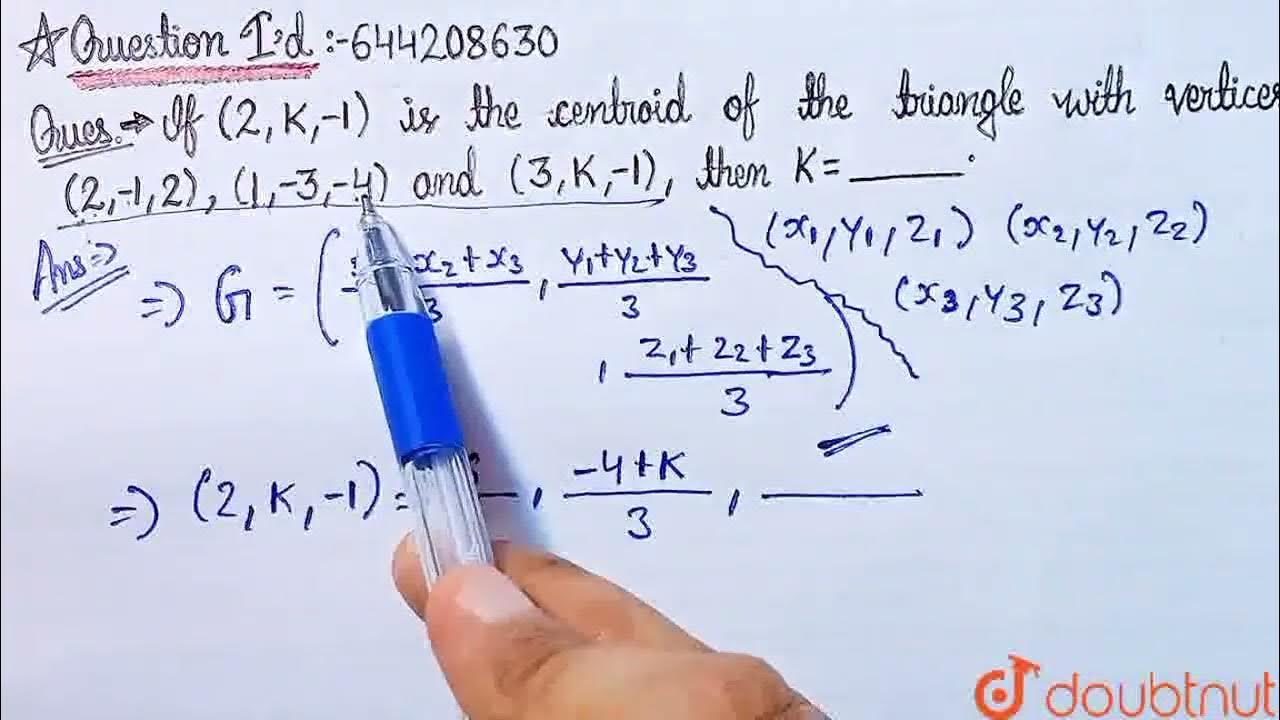 ☆ Question I'd :-644208630
Ques. → If (2, K, -1) is the centroid of the triangle with vertices
(2, -1, 2), (1, -3, -4) and (3, K, -1), then K = ______.
(x₁, y₁, z₁) (x₂, y₂, z₂)
(x₃, y₃, z₃)
Ans ⇒
⇒ G = ( x₂ + x₃ / 3, y₁+y₂+y₃ / 3
, z₁ + z₂ + z₃ / 3 )
⇒ (2, K, -1) = , -4+K / 3 , ______
doubtnut